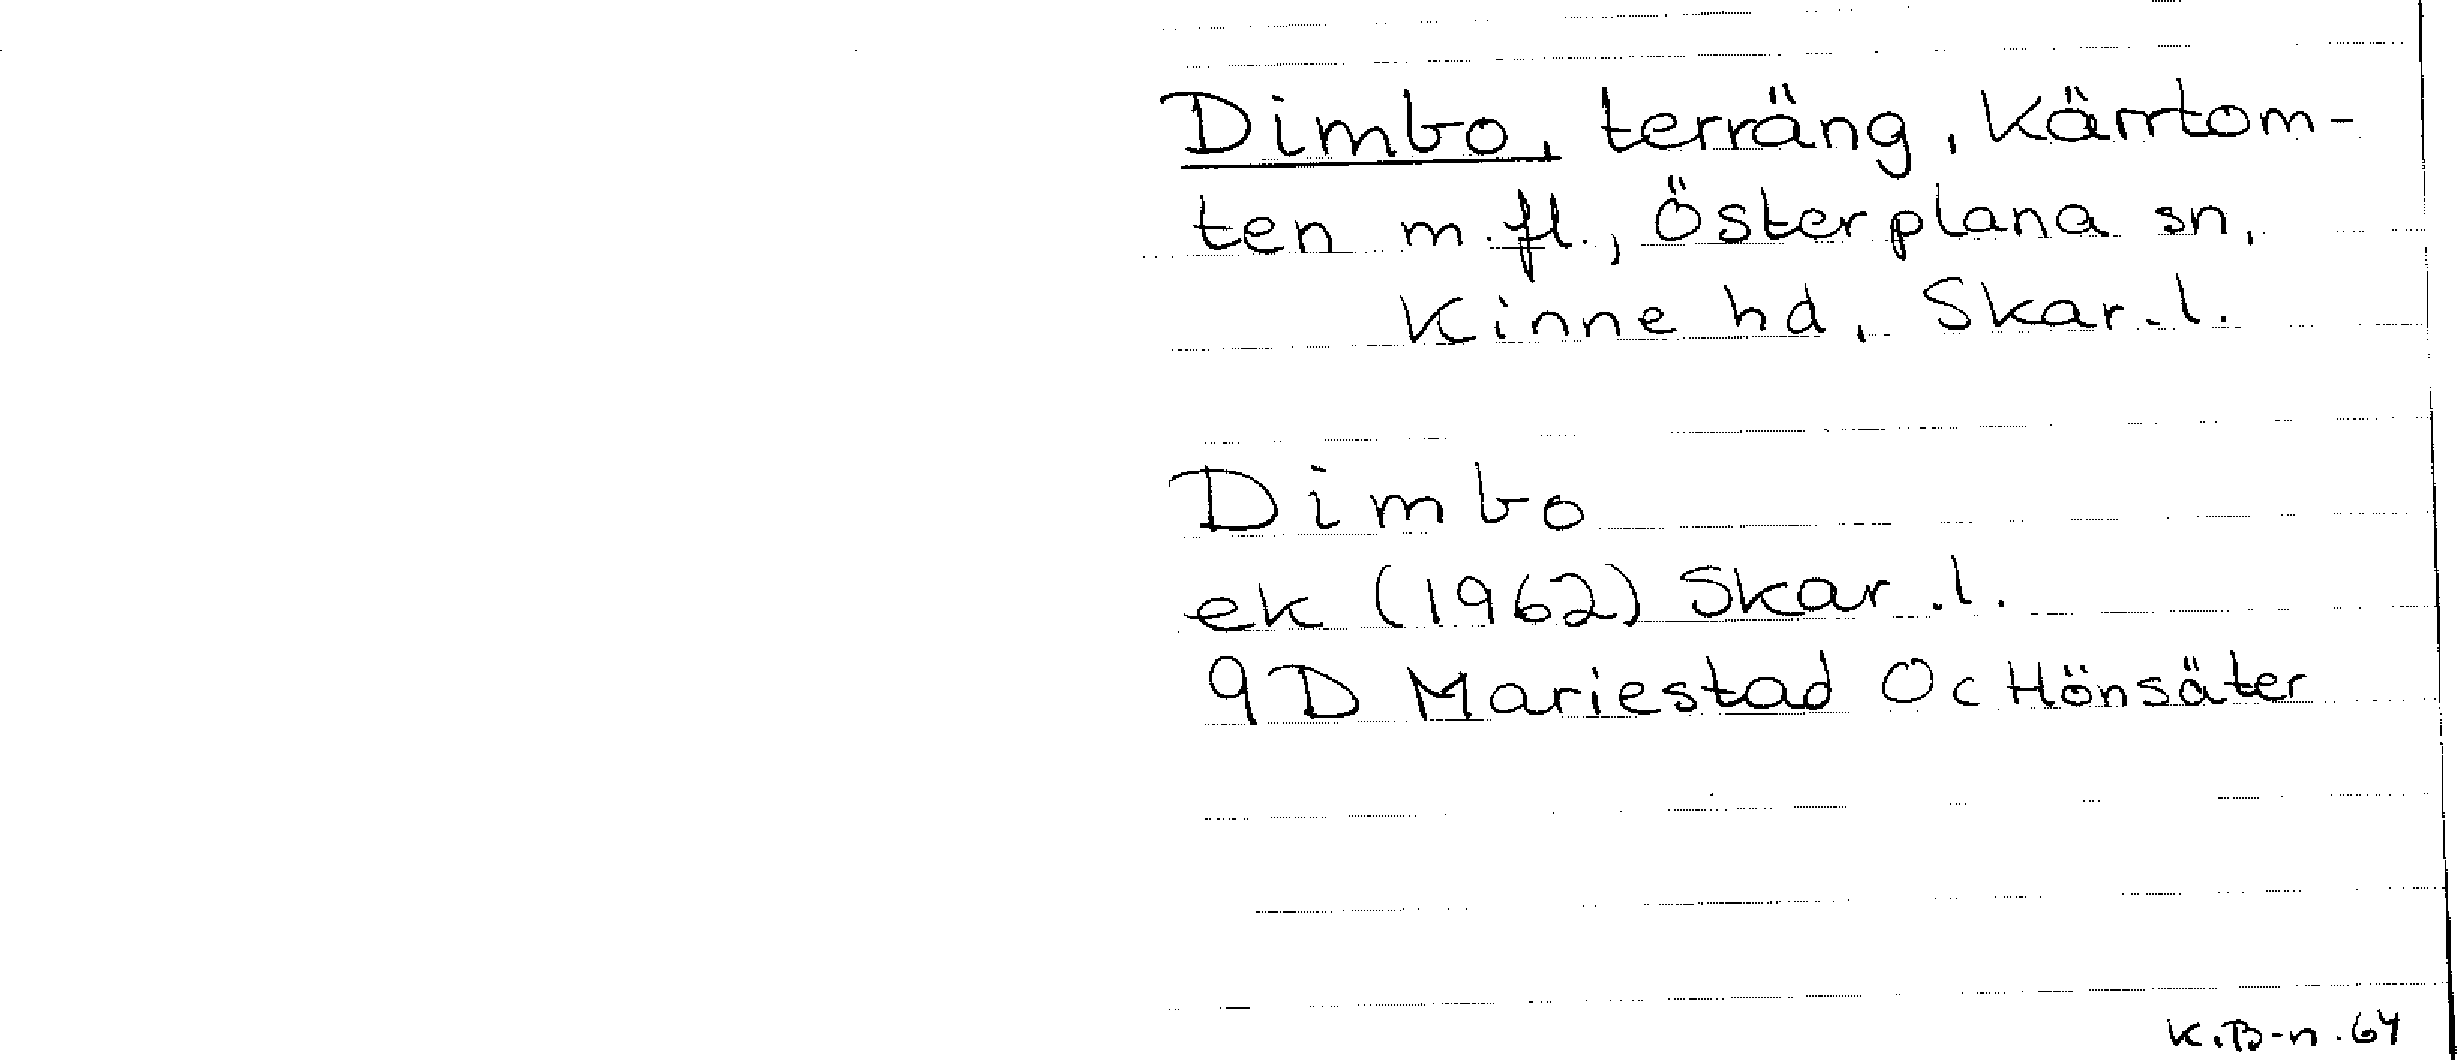 Dimbo, terräng, Kärrtom-
ten m.fl., Österplana sn,
Kinne hd, Skar.l.
Dimbo
ek (1962) Skar.l.
9D Mariestad 0c Hönsäter
K.B-n.64